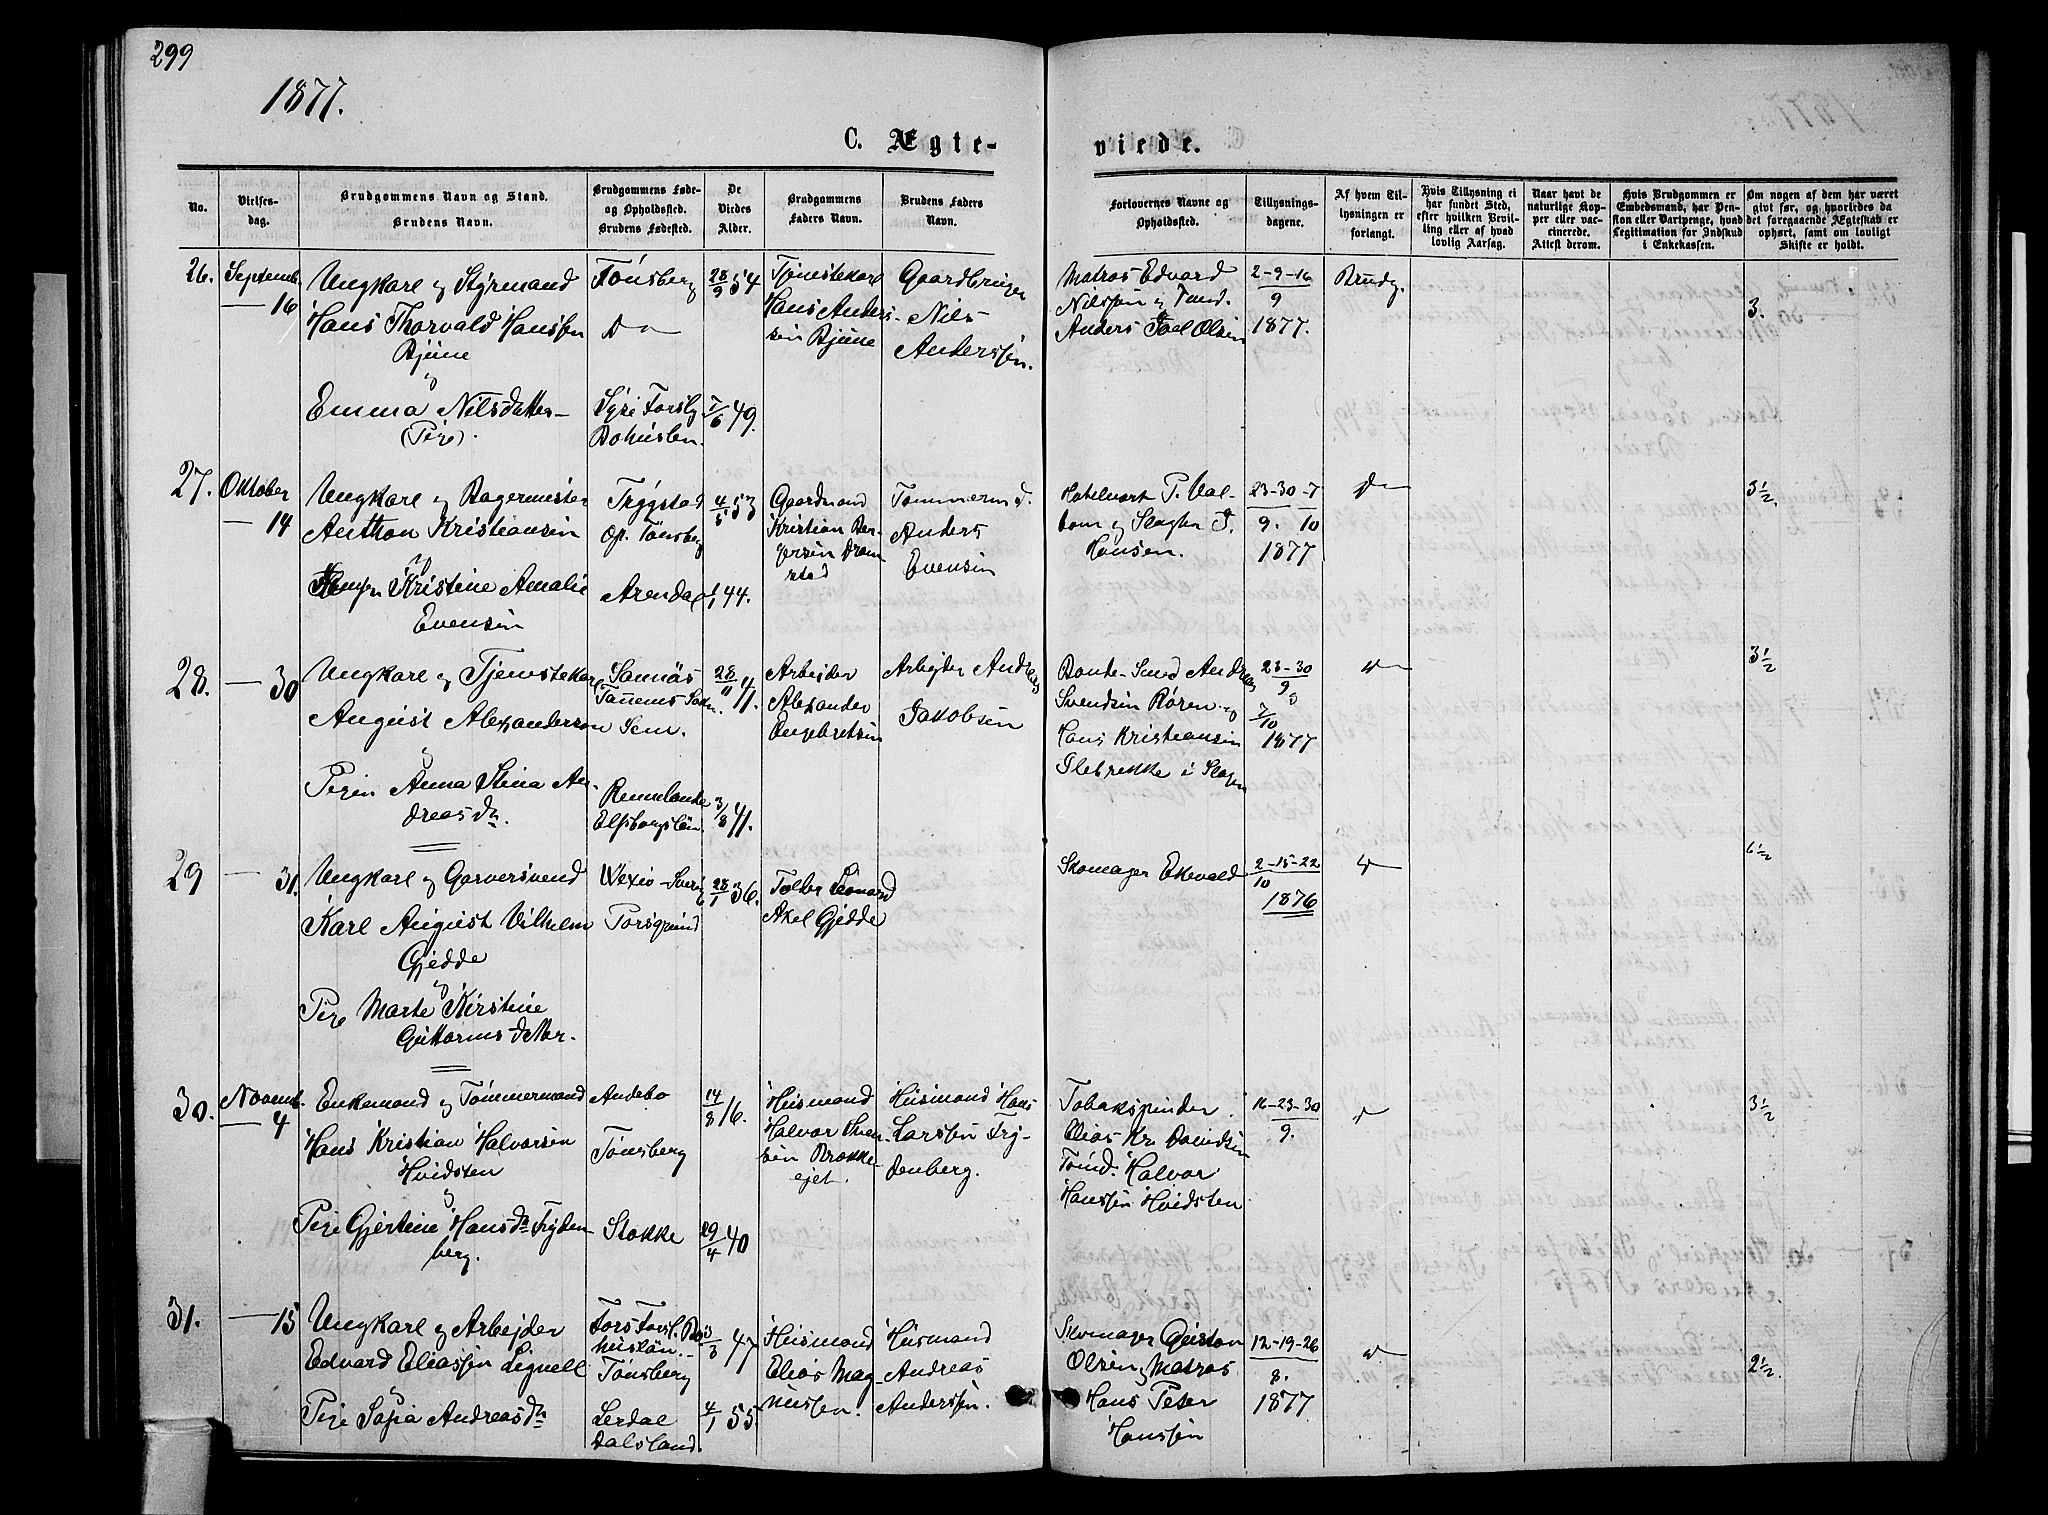 299
1877.
C. Ægte-
viede.
No.
Vielses-
dag.
Brudgommens Navn og Stand.
Brudens Navn.
Brudgommens Føde-
og Opholdssted.
Brudens Fødested.
De
Viedes
Alder.
Brudgommens
Faders Navn.
Brudens Faders
Navn.
Forlovernes Navne og
Opholdssted.
Tillysnings-
dagene.
Af hvem Til-
lysningen er
forlangt.
Hvis Tillysning ei
har fundet Sted,
efter hvilken Bevil-
ling eller af hvad
lovlig Aarsag.
Naar havt de
naturlige Kop-
per eller vac-
cinerede.
Attest derom.
Hvis Brudgommen er
Embedsmand, har Pen-
sion eller Vartpenge, hvad
Legitimation for Indskud
i Enkekassen.
Om nogen af dem har været
givt før, og hvorledes da
det foregaaende Ægteskab er
ophørt, samt om lovligt
Skifte er holdt.
26.
Septemb.
— 16
Ungkarl og Styrmand
Hans Thorvald Hanssen
Bjune
og
Emma Nilsdatter
(Pige).
Tønsberg
Do
Forsbg
Bohuslen.
28/9 54
7/6 49.
Tjenestekarl
Hans Anders-
sen Bjune
Gaardbruger
Nils
Anderssen.
Matros Edvard
Nilssen og Tømd.
Anders Olsen
2-9-16
9
1877.
Brudg.
3.
27.
Oktober
— 14
Ungkarl og Bagermester
Anthon Kristiansen
og
Kristine Amalie
Evensen
Trygstad
Op. Tønsberg
Arendal
4/5 53
1/1 44.
Gaardmand
Kristian Bør-
gersen Dram-
stad
Tømmermd.
Anders
Evensen
Hotelvært P. Val-
bom og Slagter T.
Hansen.
23-30-7
9. 10
1877
D—
3½
28.
— 30
Ungkarl og Tjenstekar
August Alexandersen
og
Pigen Anna Stina An-
dreasdn.
Sannäs
Tanums Sokn.
Sem.
Rennelanda
Elfsborgslän.
28/11 41.
3/8 41.
Arbejder
Alexander
Engebretsen
Arbejder Andreas
Jakobsen
Bonde-Smed Andreas
Svendsen Røren og
Hans Kristiansen
Slebrekke i Slagen
23-30
9
&
7/10
1877
3½
29
— 31.
Ungkarl og Garversvend
Karl August Vilhelm
Gjedde
og
Pige Marte Kirstine
Guttormsdatter.
Wexiö-Sverig
Porsgrund
28/1 36.
Tolder Leonard
Axel Gjedde
Skomager Ekevald
2-15-22
10
1876
6½
30.
Novemb.
— 4
Enkemand og Tømmermand
Hans Kristian Halvorsen
Hvidsten
og
Pige Gjertine Hansdn Fryden
berg.
Andebo
Tønsberg
Stokke
14/8 16.
29/4 40
Husmand
Halvor Iver-
sen Brække-
ejet.
Husmand Hans
Larssen Fry-
denberg.
Tobakspinder
Elias Kr. Davidsen
Tømd. Halvor
Hanssen Hvidsten
16-23-30
9.
3½
31.
— 15
Ungkarl og Arbejder
Edvard Eliassen Lignell
og
Pige Sofia Andreasdn
Fors Forsl. Bo-
huslän.
Tønsberg
Lerdal
Dalsland.
3/3 47
4/1 55
Husmand
Elias Mag-
nussen.
Husmand
Andreas
Anderssen.
Skomager Gustav
Olsen, Matros
Hans Peter
Hanssen
12-19-26
8.
1877
2½